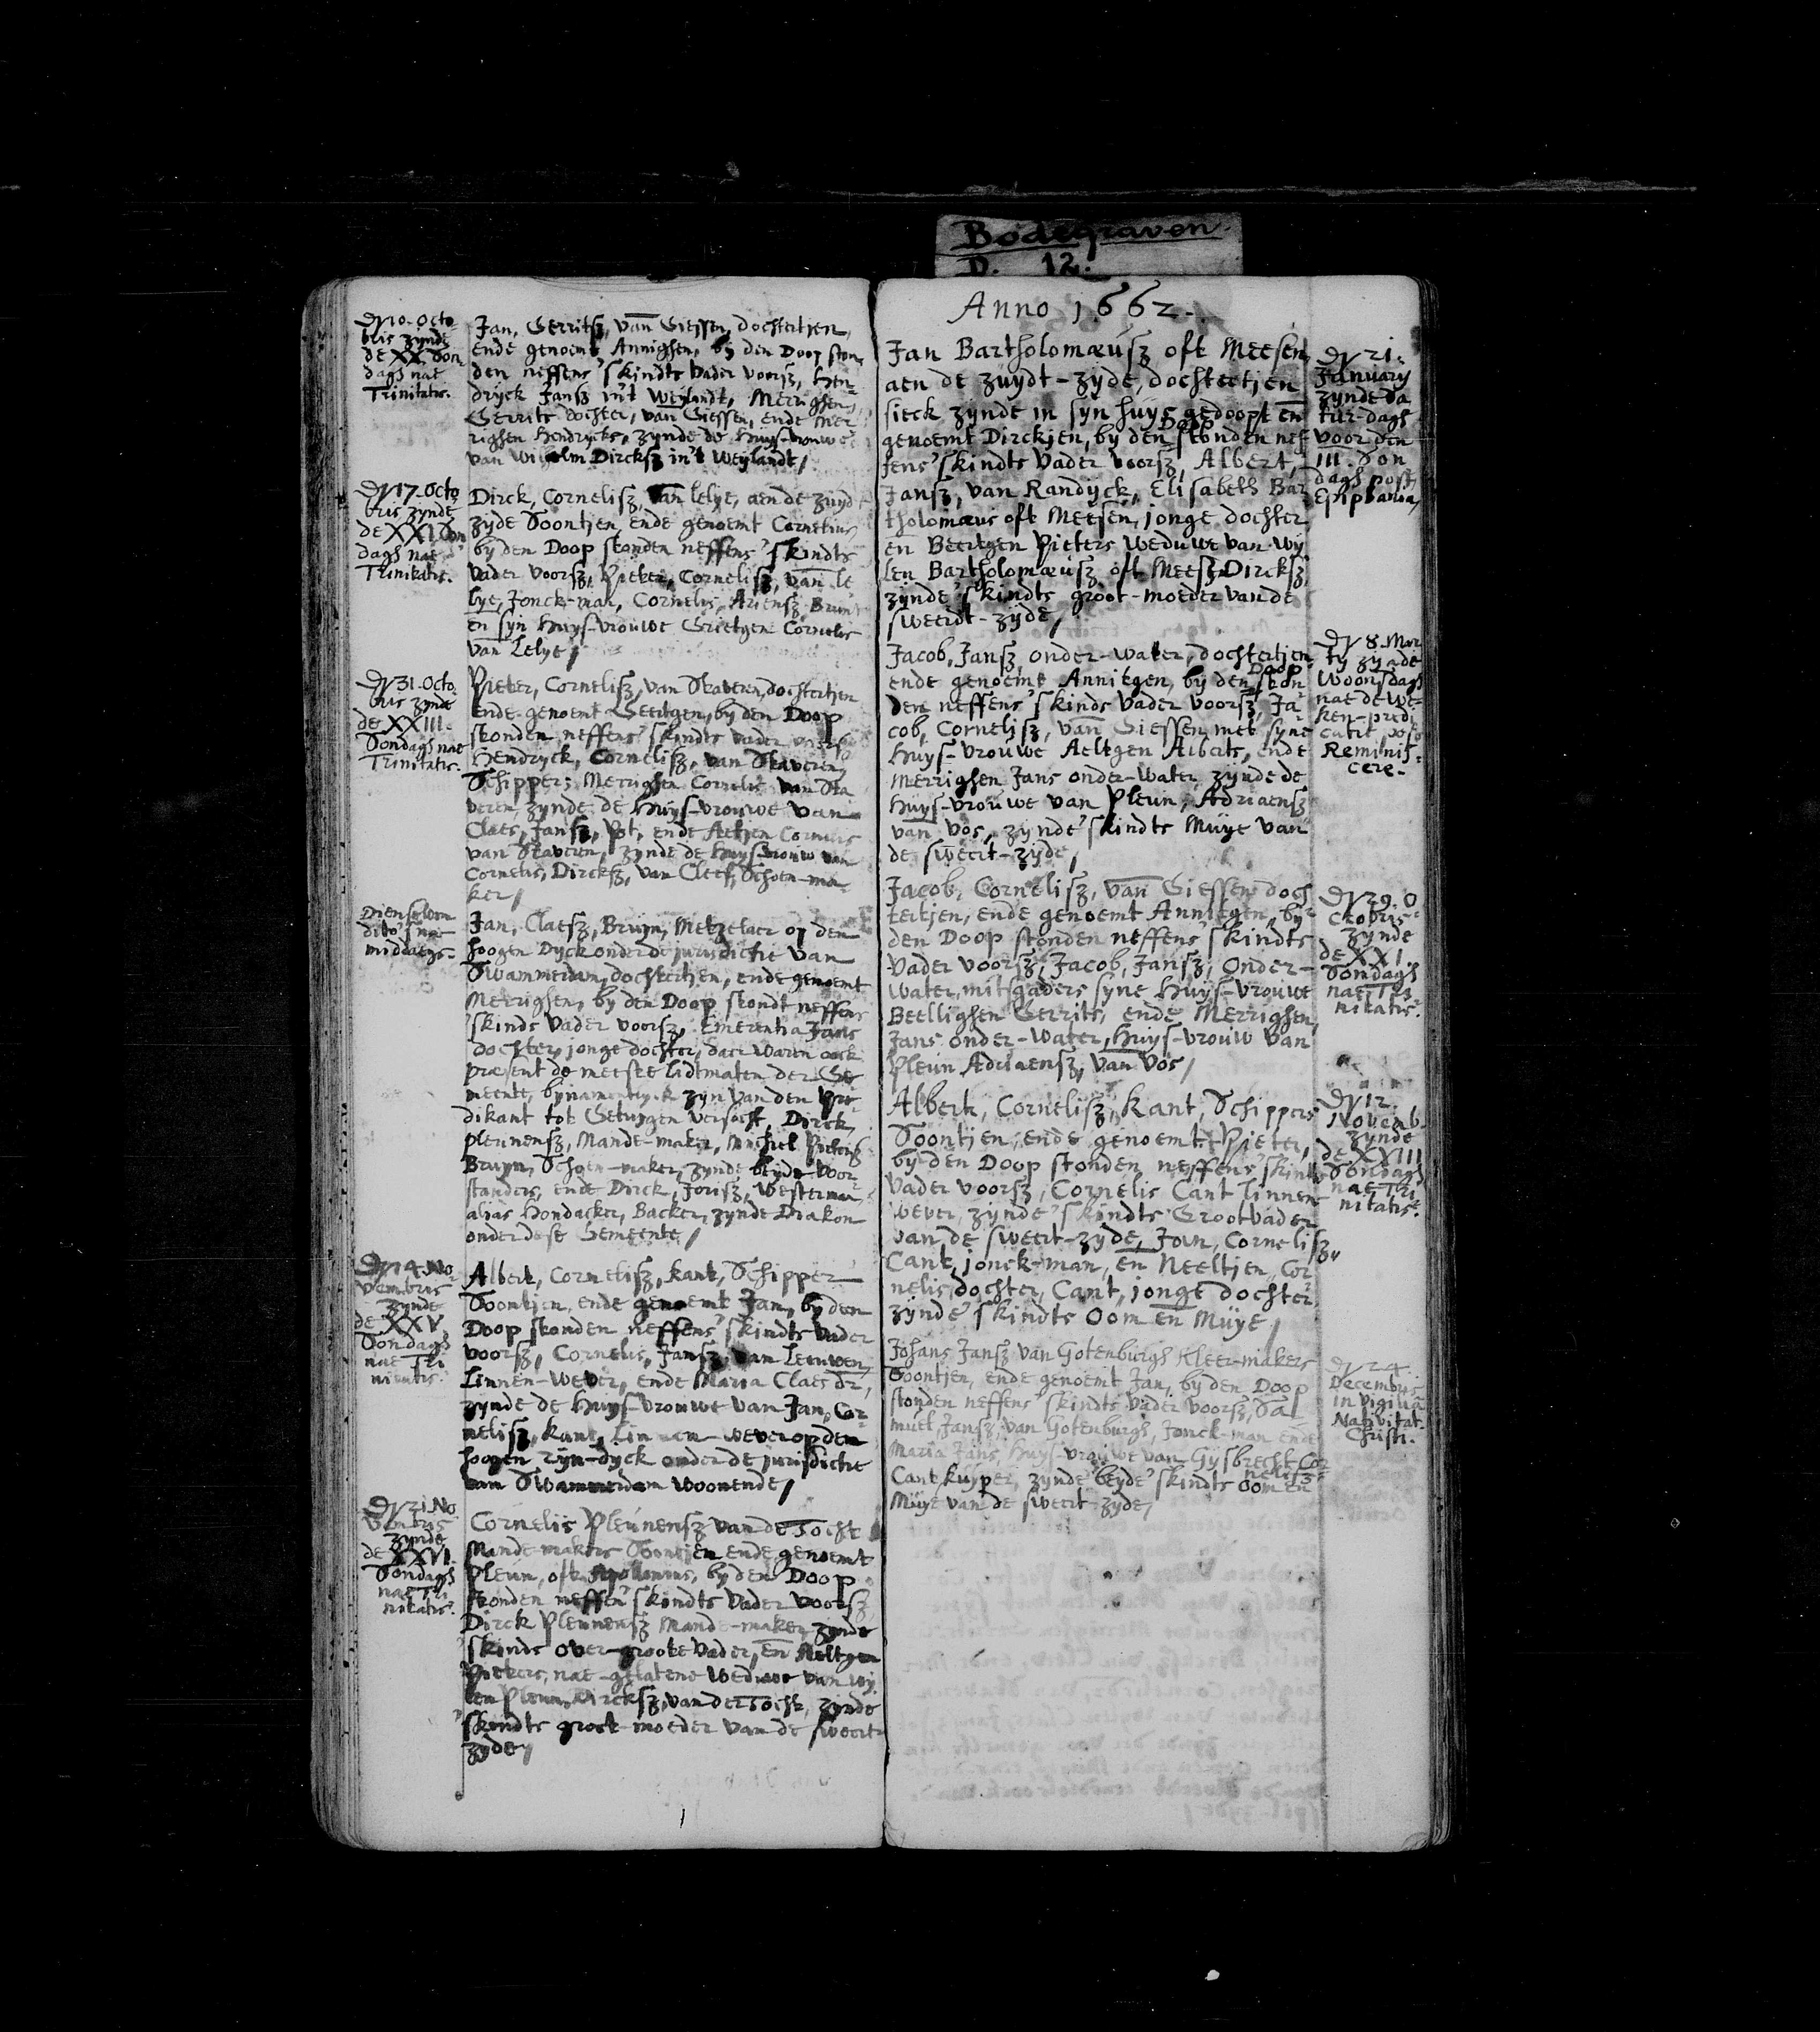 Bodegraven.
D. 12.
Dẏ 10. Octo-
bris zÿnde
de XX Son-
dagh nae
Trinitatis.
Jan, Gerritsz, van Giessen, dochtertjen,
ende genoemt Annighen, bÿ den Doop ston-
den neffens 'skindts Vader voorsz, Hen-
drÿck Jansz in't Weÿlandt, Merrighen,
Gerrits dochter, van Giessen, ende Mer-
righen Hendrÿcks, zÿnde de Huÿs-vrouwe
van Wilhelm Dircksz in't Weÿlandt/
Dẏ 17. Octo
bris zÿnde
de XXI Son
dagh nae
Trinitatis.
Dirck, Cornelisz, van Lelye, aen de zuÿd
zÿde Soontjen, ende genoemt Cornelius
bÿ den Doop stonden neffens 'skindts
Vader voorsz, Pieter, Cornelisz, van Le
lye, Jonck-man, Cornelis, Ariensz Bruin
en sÿn Huÿs-vrouwe Grietgen Cornelis
van Lelye/
Dẏ 31. Octo.
bris zÿnde
de XXIII.
Sondagh nae
Trinitatis.
Pieter, Cornelisz, van Staveren, dochtertjen
ende genoemt Geertgen, bÿ den Doop
stonden neffens 'skindts Vader voorsz
Hendrÿck, Cornelisz, van Staveren,
Schipper, Merrighen Cornelis van Sta
veren, zÿnde de Huÿs-vrouwe van
Claes, Jansz, Pot, ende Aetjen Cornelis
van Staveren, zÿnde de Huÿs-vrouw van
Cornelis, Dircksz, van Cleef, Schoen-ma-
ker/
dito 's nae
middaegs.
Jan, Claesz, Bruÿn, Metzelaer op den
hoogen Dÿck onder de jurisdictie van
Swammerdam, dochtertjen, ende genoemt
Merrighen, bÿ den Doop stondt neffens
'skinds Vader voorsz, Emerentia Jans
dochter, jonge dochter, daer waren oock
præsent de meeste lidtmaten der Ge
meente, bÿnamentlyck zÿn van den Pre
dikant tot Getuÿgen versocht, Dirck,
Pleunensz, Mande-maker, Michiel Pietersz
Bruÿn, Schoen-maker, zÿnde beÿde Voor-
standers, ende Dirck, Jorisz, Westerman
alias Hondacker, Backer, zÿnde Diakon
onder dese Gemeente/
Dẏ 14. No-
vembris
zÿnde
de XXV
Sondagh
nae Tri
nitatis.
Albert, Cornelisz, Kant, Schipper
Soontjen, ende genoemt Jan, bÿ den
Doop stonden neffens 'skindts Vader
voorsz, Cornelis, Jansz, van Leeuwen,
Linnen-wever, ende Maria Claes dr,
zÿnde de Huÿs-vrouwe van Jan, Cor-
nelisz, Kant, Linnen wever op den
hoogen rÿn-dÿck onder de jurisdictie
van Swammerdam woonende/
Dẏ 21. No
vembris
zÿnde
de XXVI.
Sondagh
nae Tri
nitatis.
Cornelis Pleunensz van de Tocht
Mande-makers Soontjen ende genoemt
Pleun, oft Apollonius, bÿ den Doop
stonden neffen 'skindts Vader voorsz,
Dirck Pleunensz Mande-maker zÿnde
'skinds over-groote Vader, en Aeltgen
Pieters, nae-gelatene Weduwe van wÿ
len Pleun, Dircksz, van der Tocht, zÿnde
'skindts groot-moeder van de sweert-
zÿde/
Anno 1662.
Jan Bartholomæusz oft Meesen
aen de zuÿdt-zÿde, dochtertjen
sieck zÿnde in sÿn huÿs gedoopt en
genoemt Dirckjen, bÿ den Doop stonden nef
fens 'skindts Vader voorsz, Albert,
Jansz, van Randÿck, Elisabeth Bar
tholomæus oft Meesen, jonge dochter
en Beertgen Pieters Weduwe van wÿ
len Bartholomæusz oft Meesz Dircksz,
zÿnde 'skindts groot-moeder van de
sweerdt-zÿde/
Dẏ 21.
January
zÿnde Sa
tur-dagh
voor den
III. Son
dagh post
Epiphania/
Jacob, Jansz onder-water, dochtertjen
ende genoemt Annitgen, bÿ den Doop ston
den neffens 'skinds Vader voorsz, Ja
cob, Cornelisz, van Giessen met sÿne
Huÿs-vrouwe Aeltgen Alberts, ende
Merrighen Jans onder-water, zÿnde de
Huÿs-vrouwe van Pleun, Adriaensz
van Vos, zÿnde 'skindts Muÿe van
de sweert-zÿde/
Dẏ 8. Mar
tÿ zÿnde
Woonsdagh
nae de we-
ken-predi
catie post
Reminis-
cere.
Jacob, Cornelisz, van Giessen doch
tertjen, ende genoemt Annitgen, bÿ
den Doop stonden neffens 'skindts
Vader voorsz, Jacob, Jansz, Onder-
water, mitsgaders sÿne Huÿs-vrouwe
Beellighen Gerrits, ende Merrighen,
Jans onder-water, Huÿs-vrouw van
Pleun Adriaensz, van Vos/
Dẏ 29. O
ctobris
zÿnde
de XXI.
Sondagh
nae Tri-
nitatis.
Albert, Cornelisz, Kant, Schippers
Soontjen, ende genoemt Pieter,
bÿ den Doop stonden neffens 'skindts
Vader voorsz, Cornelis Cant Linnen-
wever, zÿnde 'skindts Grootvader
van de sweert-zÿde, Jan, Cornelisz,
Cant, jonck-man, en Neeltjen, Cor
nelis dochter, Cant, jonge dochter,
zÿnde 'skindts Oom en Muÿe/
Dẏ 12.
Novemb.
zÿnde
de XXIII
Sondagh
nae Tri
nitatis.
Johans Jansz van Gotenburgh Kleer-makers
Soontjen, ende genoemt Jan, bÿ den Doop
stonden neffens 'skindts Vader voorsz, Sa-
muel, Jansz, van Gotenburgh, Jonck-man ende
Maria Jans, Huÿs-vrouwe van Gÿsbrecht Cor
nelisz
Cant, kuÿper, zÿnde beÿde 'skindts Oom en
Muÿe van de sweert-zÿde/
Dẏ 24
Decembris
in vigilia
Nativitat.
Christi.